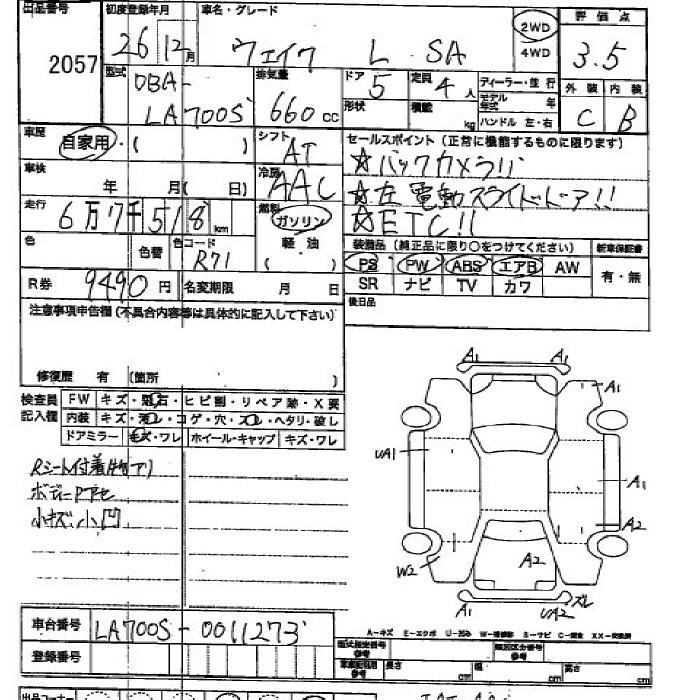 出品番号 初度登録年月 車名・グレード 評価点
2057 26 12月 ウェイク L SA 2WD 4WD 3.5
型式 DBA- LA700S 排気量 660cc ドア 5 定員 4人 ディーラー・並行 外装 内装
形状 積載 kg モデル年式 年 ハンドル 左・右 C B
車歴 自家用・( ) シフト AT セールスポイント(正常に機能するものに限ります)
☆バックカメラ!!
車検 年 月( 日) 冷房 AAC ☆左電動スライドドア!!
走行 6万7千518km 燃料 ガソリン 軽油 ( ) ☆ETC!!
色 色替 色コード R71 装備品(純正品に限り○をつけてください) 新車保証書
PS PW ABS エアB AW 有・無
R券 9490円 名変期限 月 日 SR ナビ TV カワ
注意事項申告欄(不具合内容等は具体的に記入して下さい) 後日品
修復歴 有 (箇所 )
検査員記入欄 FW キズ・飛石・ヒビ割・リペア跡・X要
内装 キズ・汚レ・コゲ・穴・スレ・ヘタリ・破レ
ドアミラー キズ・ワレ ホイール・キャップ キズ・ワレ
Rシート付着物アリ
ボディー
小キズ.小凹
A1 A1
A1
UA1 A1
A2
W2 A2
A1 UA2 ズレ
A-キズ E-エクボ U-凹み W-補修跡 S-サビ C-腐食 XX-交換済
車台番号 LA700S-0011273
型式指定番号 参考 類別区分番号 参考
登録番号 長さ cm 幅 cm 高さ cm
出品コーナー